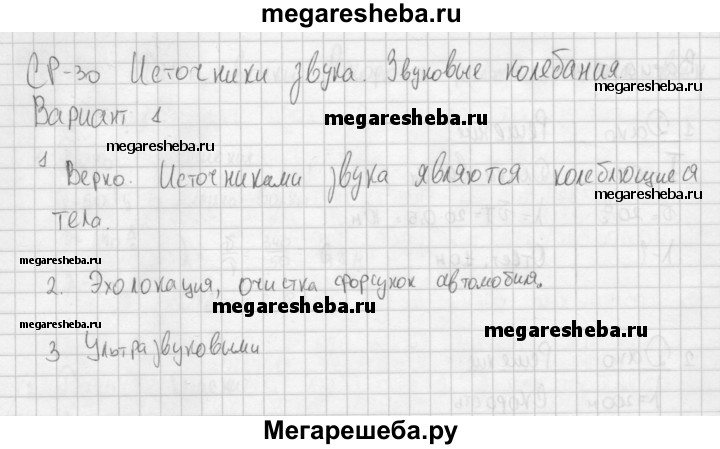 megaresheba.ru
СР-30 Источники звука. Звуковые колебания
megaresheba.ru
Вариант 1
megaresheba.ru
megaresheba.ru
1 Верно. Источниками звука являются колеблющиеся
megaresheba.ru
тела.
megaresheba.ru
2. Эхолокация, очистка форсунок автомобиля.
megaresheba.ru
megaresheba.ru
megaresheba.ru
3 Ультразвуковыми
Мегарешеба.ру